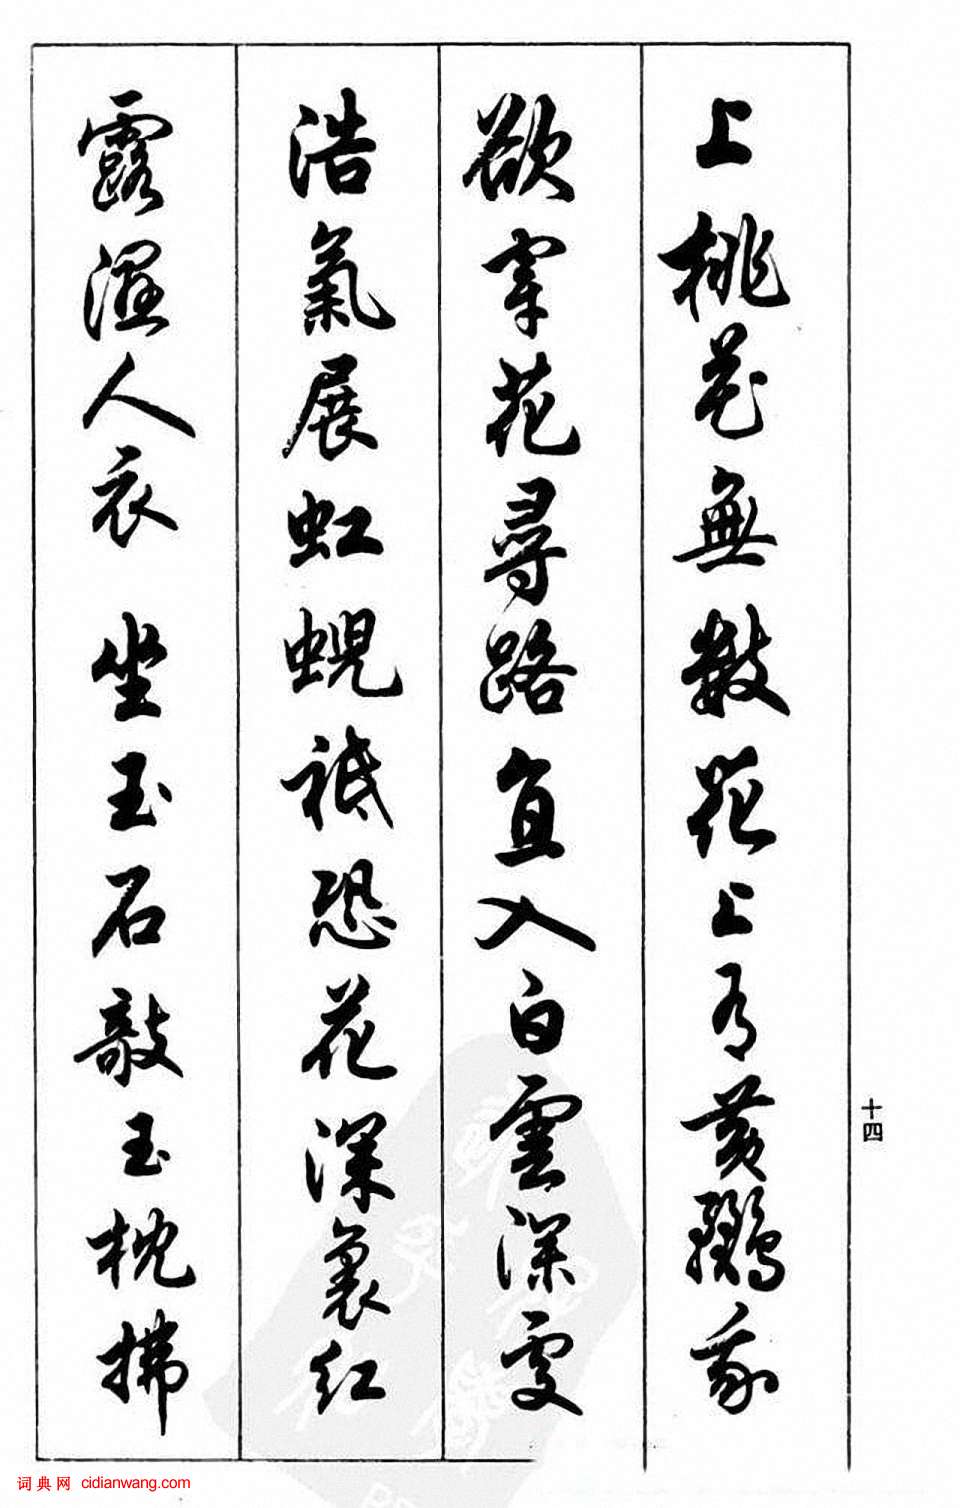 上桃花無數花上有黃鸝我
欲穿花尋路直入白雲深處
浩氣展虹蜺祗恐花深裏紅
露濕人衣坐玉石敲玉枕拂
十四
词典网 cidianwang.com